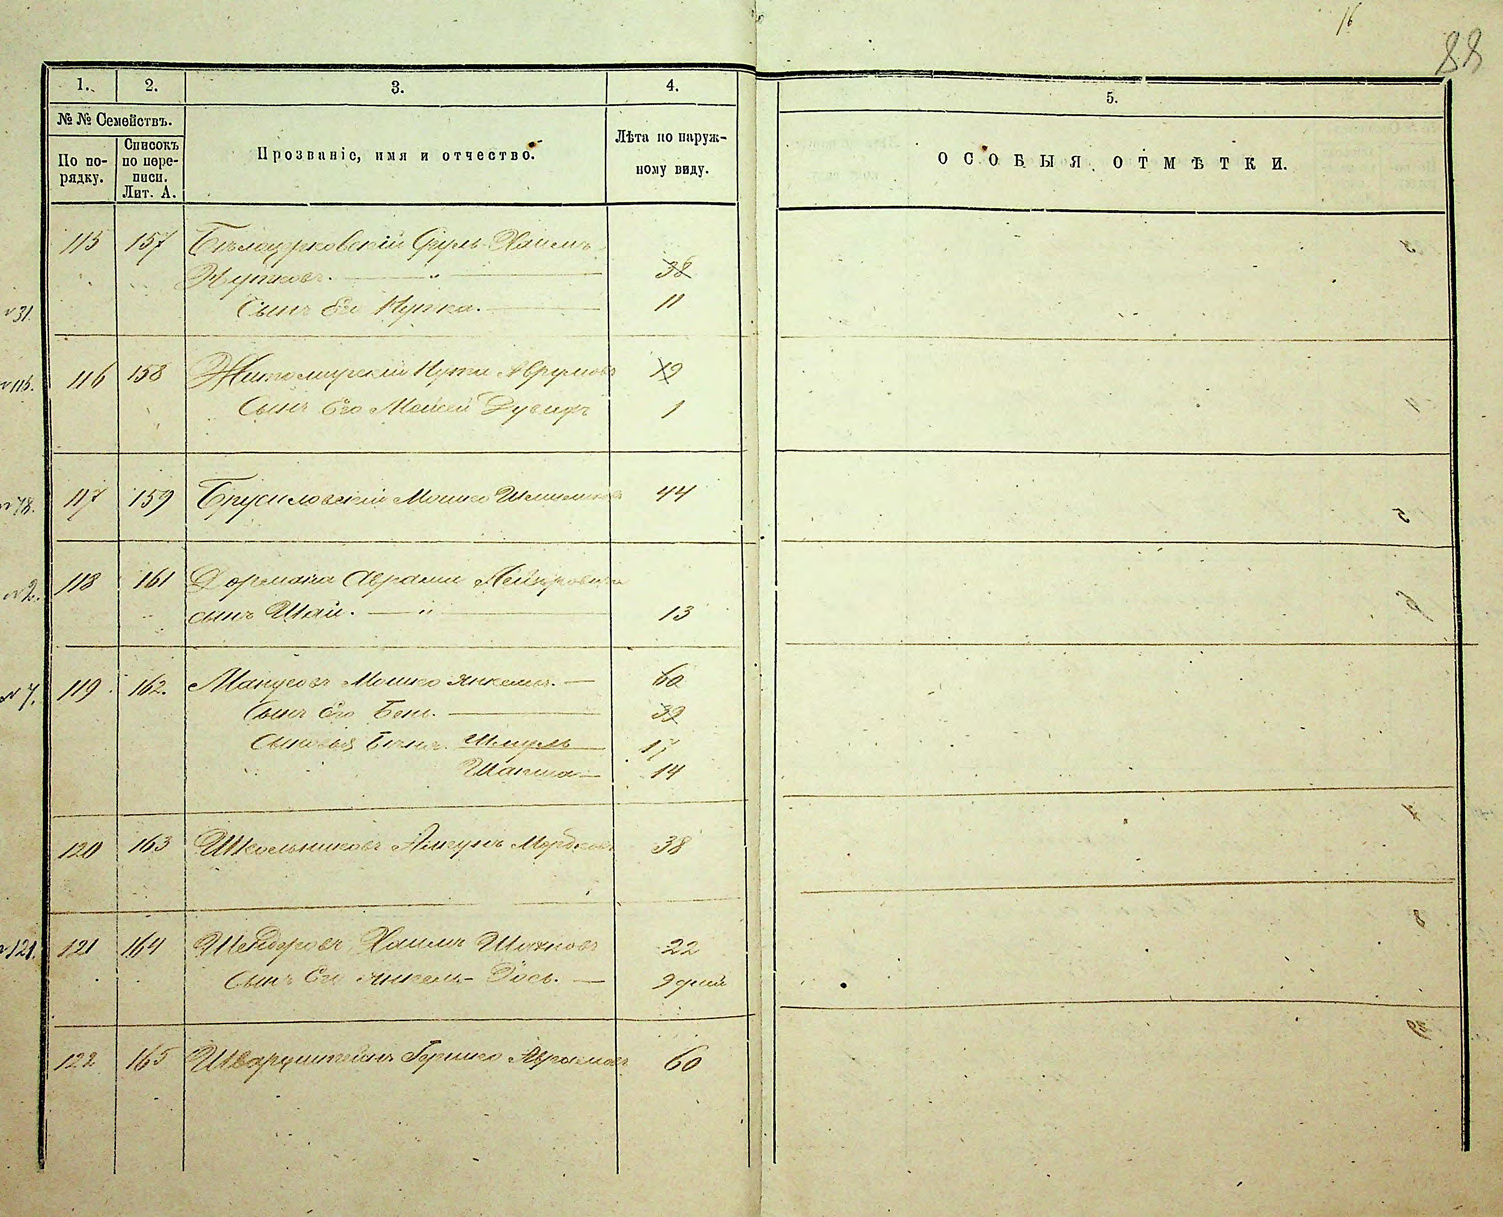 16
88
1. 2. 3. 4. 5.
№ № Семействъ.
По порядку.
Списокъ по переписи. Лит. А.
Прозваніе, имя и отчество.
Лѣта по наружному виду.
ОСОБЫЯ ОТМѢТКИ.
115 157 Бѣлоцерковскій Сруль Хаимъ
38
№31. Сынъ Его Нутка. 11
116 158 Житомирскій Аврумовъ 19
Сынъ Его Мейсей Дувидъ 1
117 159 Брусиловскій Мошко 44
№2. 118 161 Дормана Аврама
сынъ Шаи. — " — 13
№7. 119 162. Манусовъ Мошко Янкелев. — 60
Сынъ Его Бень. — 39
Сыновья Шмуль 17
14
120 163 Школьниковъ Мордковъ 38
№121. 121 164 Шендеровъ Хаимъ 22
Сынъ Его Янкель-Іось. — 9 дней
122 165 Шварцштейнъ Гершко Абрамовъ 60